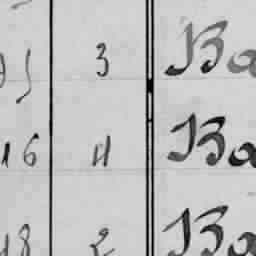 3 Ba
16 4 Ba
18 2 Ba